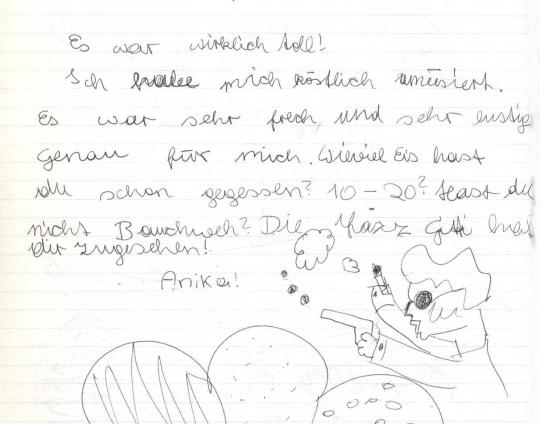 Es war wirklich toll!
Ich habe mich köstlich amüsiert.
Es war sehr frech und sehr lustig
Genau für mich. Wieviel Eis hast
du schon gegessen? 10-20? Hast du
nicht Bauchweh? Die Gitti hat
dir zugesehen!
Anika!